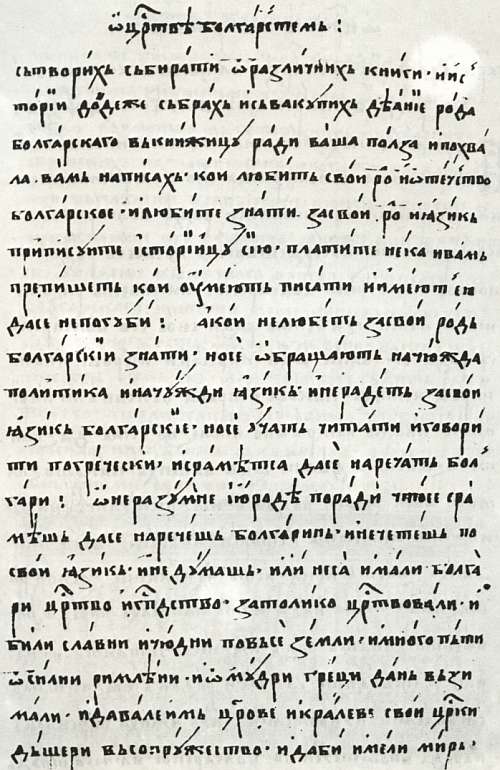 ѿ цр҃твѣ болгарстемь :
сътворихь събирати ѿ различнихь книги · и ис
торїи додеже събрахь и съвакупихь дѣанїе рода
болгарскаго въ книжицу ради ваша полза и похва
ла · вамь написахь · кои любить свои ро҃ и ѿтечьство
болгарское · и любите знати · за свои ро҃ и ѩзикь
приписуите історїицу сїю · платите нека и вамь
препишеть кои ѹмеють писати и имеют ею
да се не погуби : а кои не любеть за свои родь
болгарскїи знати · но се ѡбращають на чюжда
политика и на чужди ѩзикь · и не радеть за свои
ѩзикь болгарскїе · но се учать читати и говори
ти по гречески · и срамѣтса да се наречать бол
гари : ѿ неразумне и юродѣ поради что се сра
мѣшь да се наречешь болгаринь · и не четешь по
свои ѩзикь · и не думашь · или неса имали болга
ри цр҃тво и гп҃дство · за толико цр҃твовали · и
били славни и чюдни по въсе земли · и много пѫти
ѿ силни римлѣни · и ѿ мудри греци дань възи
мали · и давале имь цр҃ове и кралеве свои цр҃ки
дъщери въ сопружество · и да би имели мирь ·